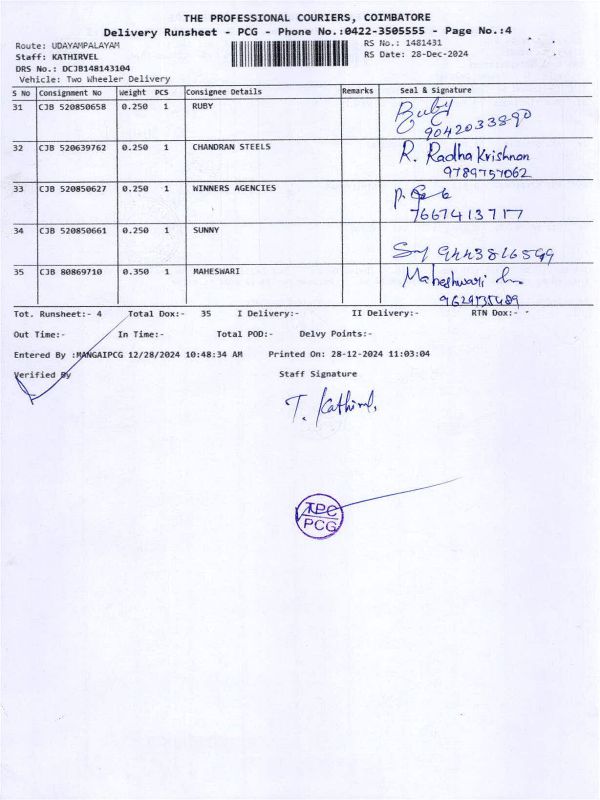 THE PROFESSIONAL COURIERS, COIMBATORE
Delivery Runsheet - PCG - Phone No.:0422-3505555 - Page No.:4
Route: UDAYAMPALAYAM RS No.: 1481431
Staff: KATHIRVEL RS Date: 28-Dec-2024
DRS No.: DCJB148143104
Vehicle: Two Wheeler Delivery
S No Consignment No Weight PCS Consignee Details Remarks Seal & Signature
31 CJB 520850658 0.250 1 RUBY Ruby
9042033890
32 CJB 520639762 0.250 1 CHANDRAN STEELS R. Radha Krishnan
9789757062
33 CJB 520850627 0.250 1 WINNERS AGENCIES
7667413717
34 CJB 520850661 0.250 1 SUNNY
9443816599
35 CJB 80869710 0.350 1 MAHESWARI Maheshwari
9629735489
Tot. Runsheet:- 4 Total Dox:- 35 I Delivery:- II Delivery:- RTN Dox:-
Out Time:- In Time:- Total POD:- Delvy Points:-
Entered By :MANGAIPCG 12/28/2024 10:48:34 AM Printed On: 28-12-2024 11:03:04
Verified By Staff Signature
T. Kathirvel
TPC
PCG